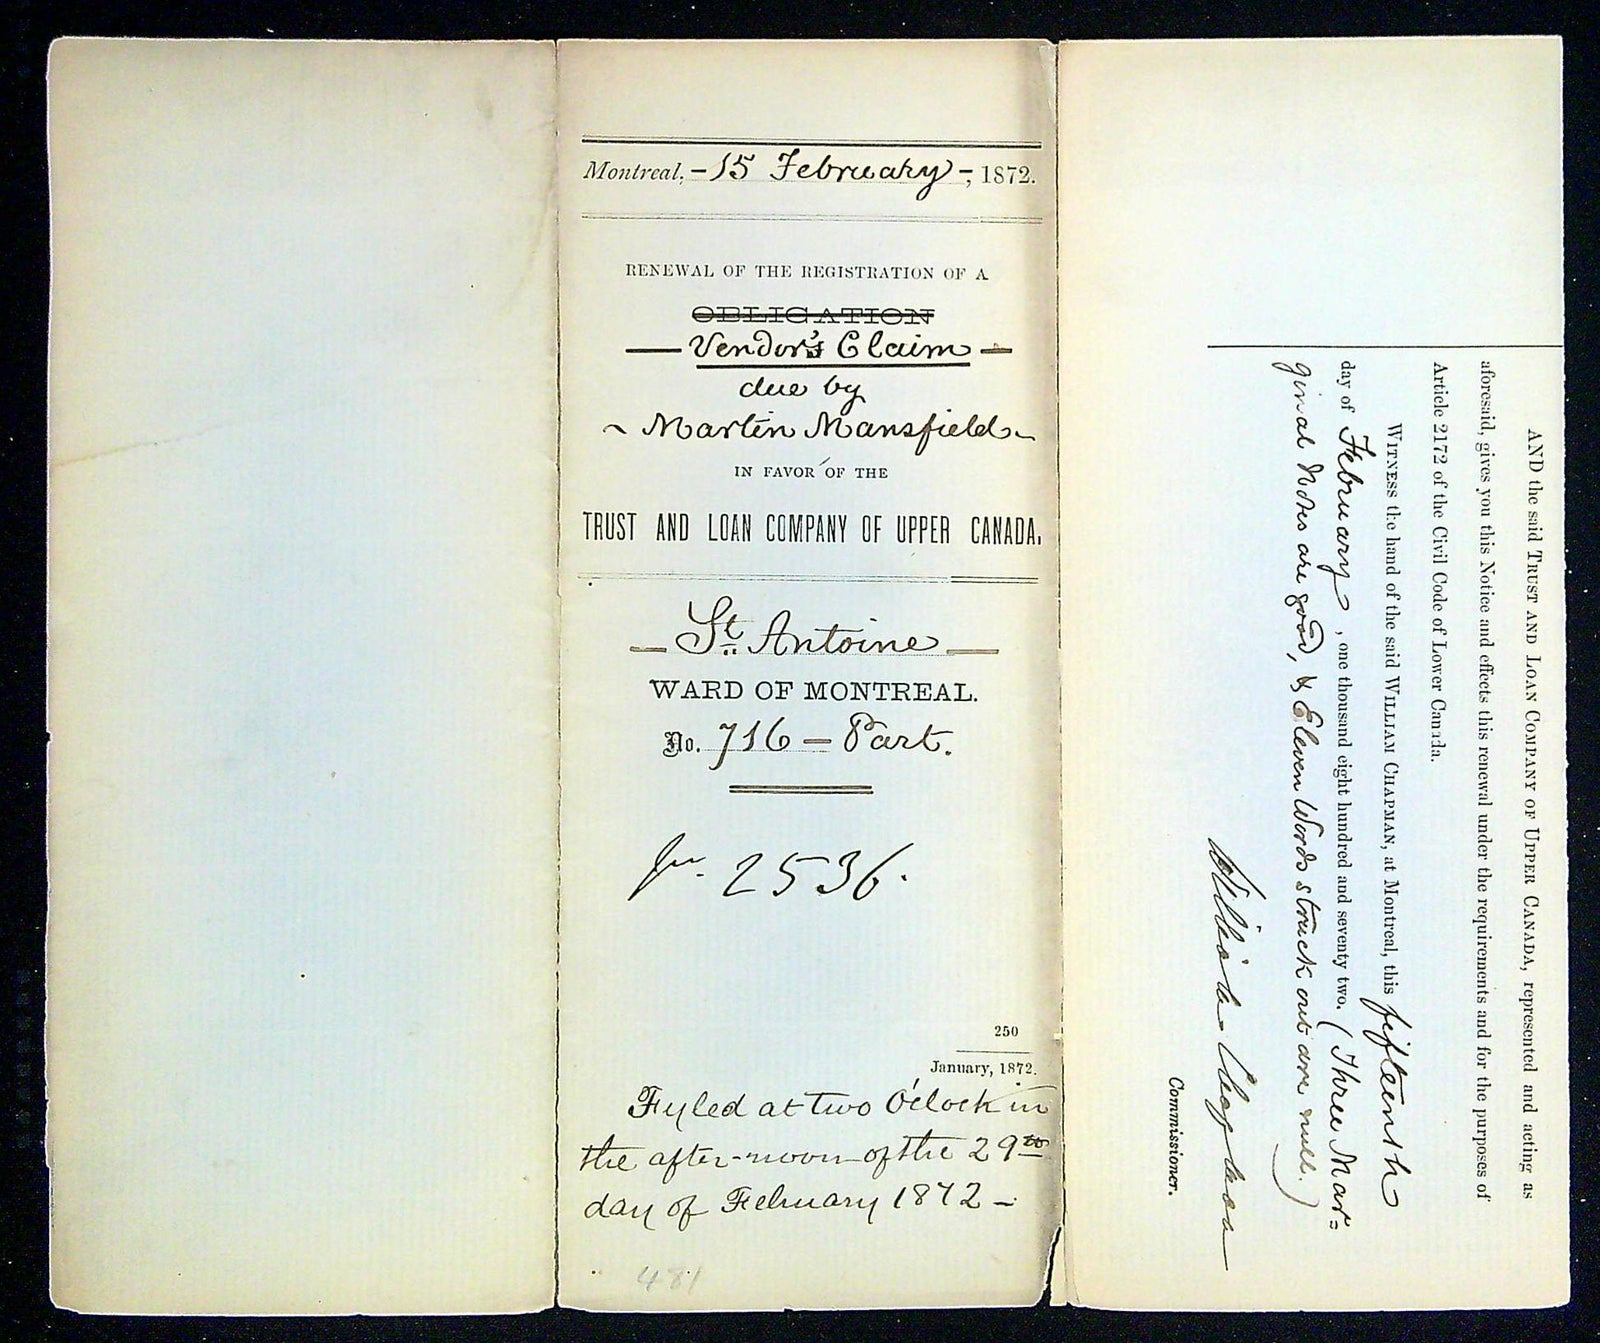 Montreal, – 15 February –, 1872.
RENEWAL OF THE REGISTRATION OF A
OBLIGATION
Vendor's Claim
due by
Martin Mansfield
IN FAVOR OF THE
TRUST AND LOAN COMPANY OF UPPER CANADA,
St. Antoine
WARD OF MONTREAL.
No. 716 – Part.
2536.
250
January, 1872.
Fyled at two O'Clock in
the after-noon of the 29th
day of February 1872 –
481
AND the said TRUST AND LOAN COMPANY OF UPPER CANADA, represented and acting as
aforesaid, gives you this Notice and effects this renewal under the requirements and for the purposes of
Article 2172 of the Civil Code of Lower Canada.
WITNESS the hand of the said WILLIAM CHAPMAN, at Montreal, this fifteenth
day of February, one thousand eight hundred and seventy two. (Three Mar=
ginal Notes are good, & Eleven Words struck out are null.)
William Chapman
Commissioner.